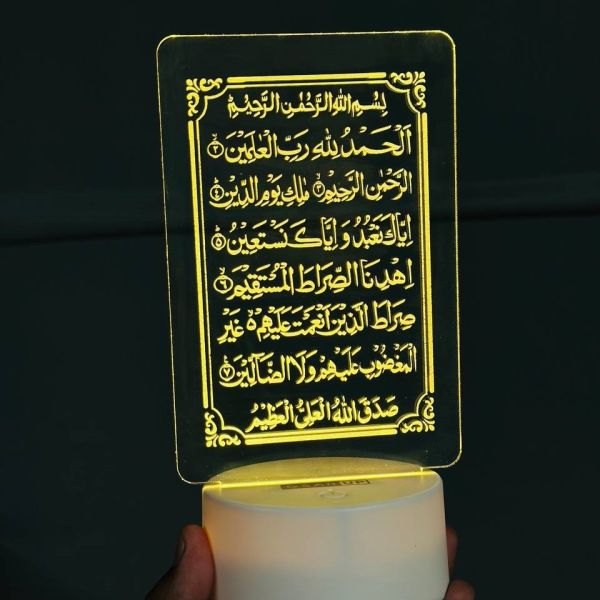 بِسْمِ اللهِ الرَّحْمٰنِ الرَّحِيْمِ
اَلْحَمْدُ لِلّٰهِ رَبِّ الْعٰلَمِيْنَ ٢
الرَّحْمٰنِ الرَّحِيْمِ ٣ مٰلِكِ يَوْمِ الدِّيْنِ ٤
اِيَّاكَ نَعْبُدُ وَاِيَّاكَ نَسْتَعِيْنُ ٥
اِهْدِنَا الصِّرَاطَ الْمُسْتَقِيْمَ ٦
صِرَاطَ الَّذِيْنَ اَنْعَمْتَ عَلَيْهِمْ ەۙ غَيْرِ
الْمَغْضُوْبِ عَلَيْهِمْ وَلَا الضَّاۤلِّيْنَ ٧
صَدَقَ اللهُ الْعَلِيُّ الْعَظِيْمُ